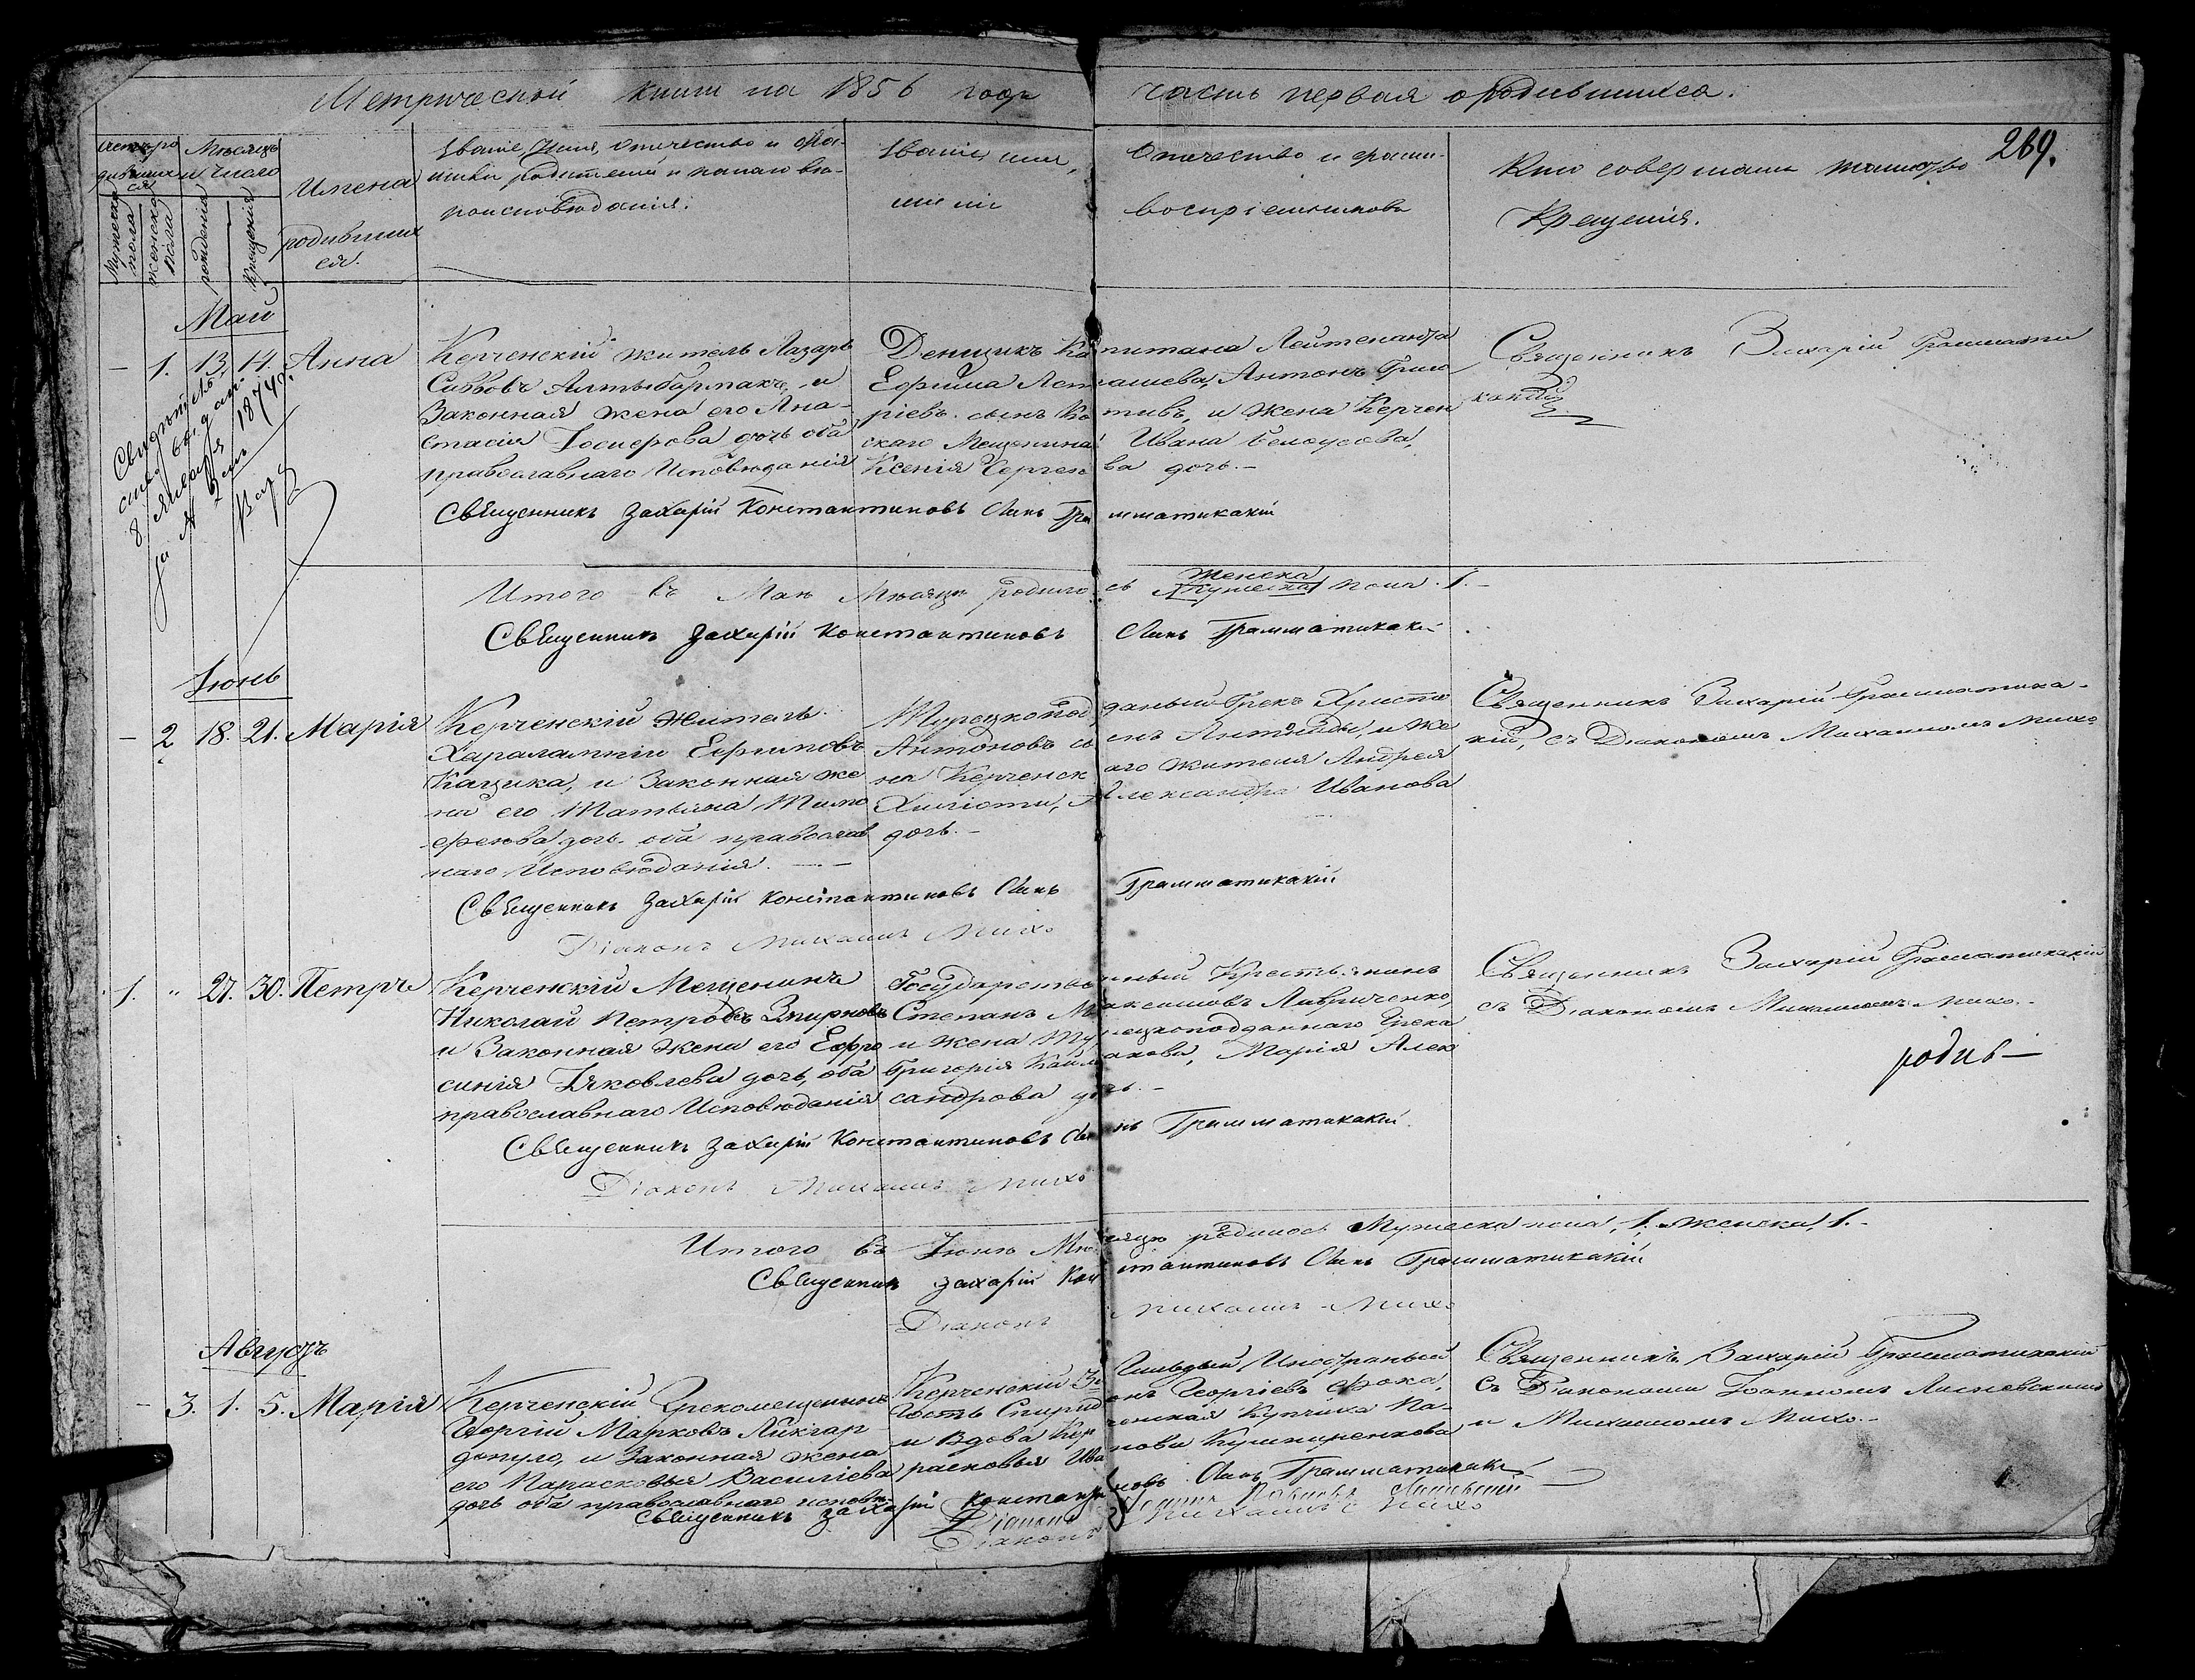 Метрической книги на 1856 годъ часть первая о родившихся.
269.
Мѣсяцъ
и число
Мужеска
пола
женска
пола
рожденія
крещенія
Имена
родивших
ся.
Званіе, Имя, Отчество и фами-
родителей и какого вѣ-
роисповѣданія.
Званіе, имя,
Отчество и фами-
воспріемниковъ
Кто совершалъ таинство
Крещенія.
Май
– 1. 13. 14. Анна
Керченскій житель Лазарь
Саввовъ Алтыбармакъ, и
Законная жена его Ана-
стасія дочь оба
православнаго Исповѣданія
Денщикъ Капитана Лейтенанта
Ефима Антонъ Григо
ріевъ сынъ и жена Керчен
скаго Мещанина Ивана Белоусова,
Ксенія Сергеева дочь.–
Священникъ Захарій Граммати
какій
8 Января 1874.
Священникъ Захарій Константиновъ Сынъ Грамматикакій
Итого въ Маѣ Мѣсяцѣ родилось Женска пола 1.–
Священникъ Захарій Константиновъ Сынъ Грамматикакій
Іюнь
– 2 18. 21. Марія
Керченскій Житель
Харалампій Ефимовъ
Кацика, и Законная же
на его Татьяна Тимо
феева дочь оба православ
наго Исповѣданія.–
Турецкоподданый Грекъ Христо
Антоновъ сынъ и же
на Керченскаго жителя Андрея
Александра Иванова
дочь.–
Священникъ Захарій Грамматика-
кій, съ Діакономъ Михаиломъ Михо
Священникъ Захарій Константиновъ Сынъ Грамматикакій
Діаконъ Михаилъ Михо
1. " 27. 30. Петръ
Керченскій Мещанинъ
Николай Петровъ Смирновъ
и Законная жена его Ефро
синія Яковлева дочь, оба
православнаго Исповѣданія
Государственный Крестьянинъ
Степанъ Максимовъ Лавриченко,
и жена Турецкоподданнаго Грека
Григорія Марія Алек
сандрова дочь.–
Священникъ Захарій Грамматикакій
съ Діакономъ Михаиломъ Михо.–
родив–
Священникъ Захарій Константиновъ Сынъ Грамматикакій.
Діаконъ Михаилъ Михо
Итого въ Іюнѣ Мѣсяцѣ родилось Мужеска пола, 1, Женска, 1.–
Священникъ Захарій Константиновъ Сынъ Грамматикакій
Діаконъ Михаилъ Михо
Августъ
– 3. 1. 5. Марія
Керченскій Грекомещанинъ
Георгій Марковъ Ликіар
допуло, и Законная жена
его Парасковья Василіева
дочь оба православнаго исповѣ
Керченскій 3й Гильдіи Иностранный
Гость Спиридонъ Георгіевъ Фока,
и Вдова Керченская Купчиха Па-
расковья Иванова Кушниренкова
Священникъ Захарій Грамматикакій
Съ Діаконами Іоанномъ
и Михаиломъ Михо.–
Священникъ Захарій Константиновъ Сынъ Грамматикакій
Діаконъ Іоаннъ Павловъ
Діаконъ Михаилъ Михо